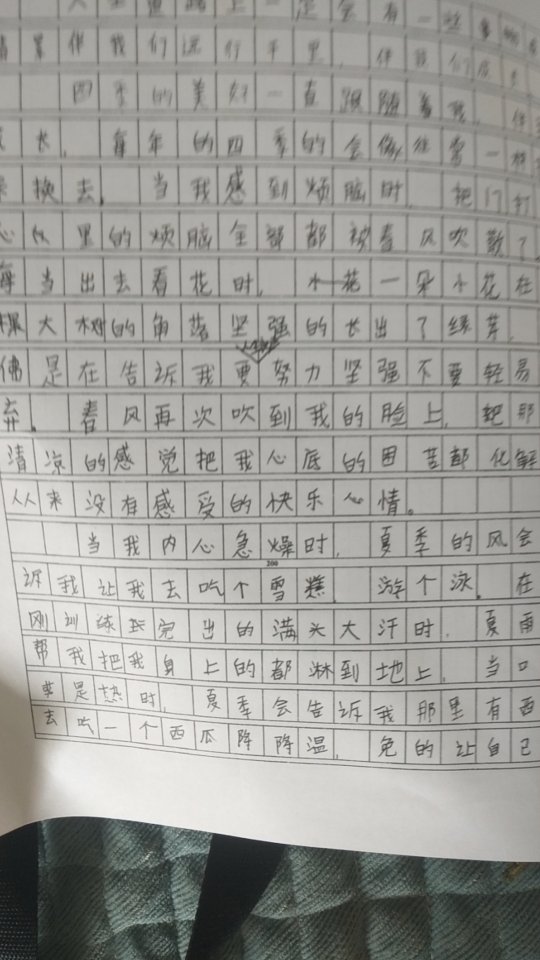 会有一些事
伴我们远行千里，伴我们成
四季的美好一直跟随着我，伴
长，每年的四季的会像往常一样
换去。当我感到烦脑时，把门打
心里的烦脑全部都被春风吹散了
每当出去看花时，小花一朵小花在
棵大树的角落坚强的长出了绿芽，
佛是在告诉我要努力坚强不要轻易
弃。春风再次吹到我的脸上，把那
清凉的感觉把我心底的困苦都化解
从来没有感受的快乐心情。
当我内心急燥时，夏季的风会
200
诉我让我去吃个雪糕，游个泳。在
刚训练完出的满头大汗时，夏雨
帮我把我身上的都淋到地上，当口
是热时，夏季会告诉我那里有西
去吃一个西瓜降降温，免的让自己